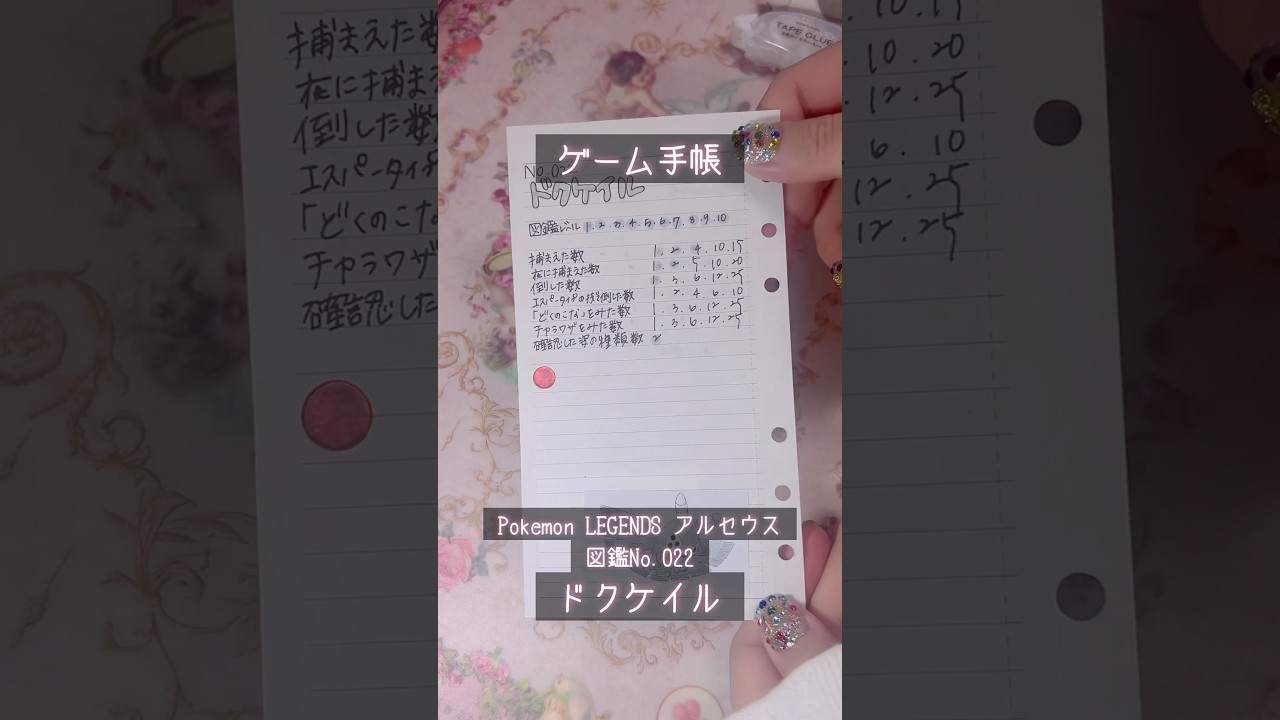 TAPE GLUE
ゲーム手帳
No.0
ドクケイル
図鑑レベル 1.2.3.4.5.6.7.8.9.10
捕まえた数 1.2.4.10.15
夜に捕まえた数 1.2.5.10.20
倒した数 1.3.6.12.25
エスパータイプの技で倒した数 1.2.4.6.10
「どくのこな」をみた数 1.3.6.12.25
チカラワザをみた数 1.3.6.12.25
確認した姿の種類数 2
Pokemon LEGENDS アルセウス
図鑑No.022
ドクケイル
捕まえた数
夜に捕ま
倒した数
エスパータイプ
「どくのこな
チカラワザ
確認した
10.15
10.20
12.25
6.10
12.25
12.25